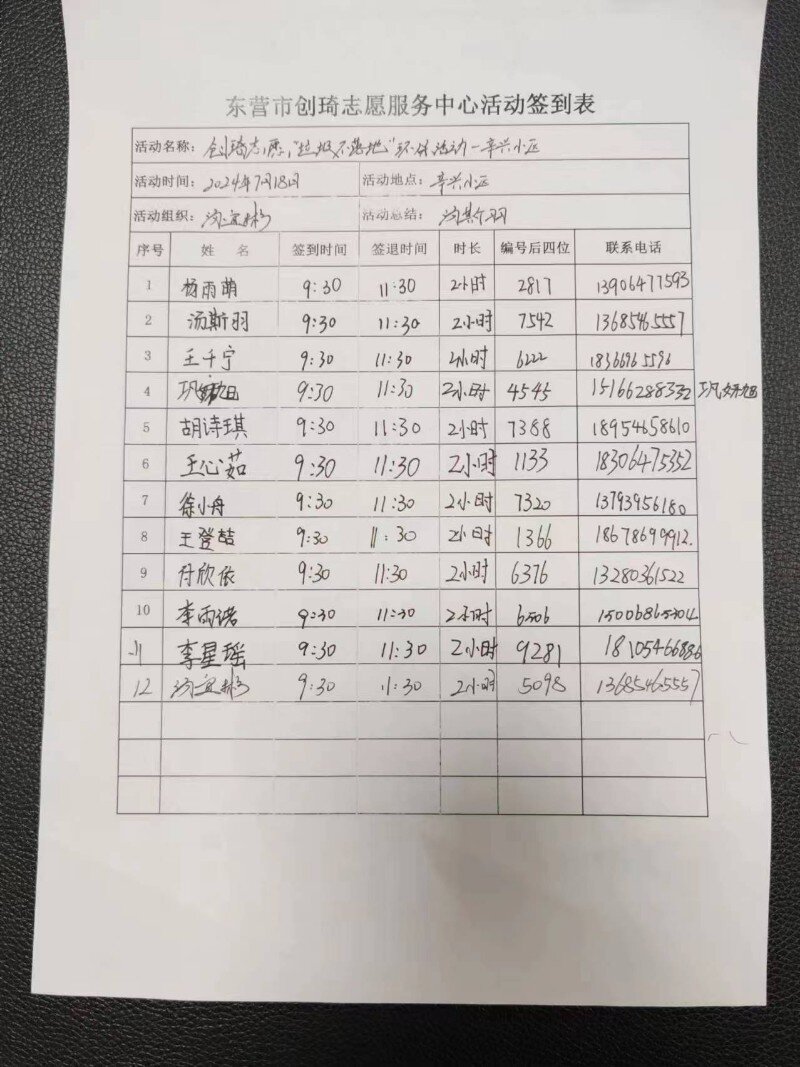 东营市创琦志愿服务中心活动签到表
活动名称: 创琦志愿"垃圾不落地"环保活动-辛兴小区
活动时间: 2024年7月18日 活动地点: 辛兴小区
活动组织: 汤宜彬 活动总结: 汤斯羽
序号 姓名 签到时间 签退时间 时长 编号后四位 联系电话
1 杨雨萌 9:30 11:30 2小时 2817 13906477593
2 汤斯羽 9:30 11:30 2小时 7542 13685465557
3 王千宁 9:30 11:30 2小时 6222 18366965596
4 9:30 11:30 2小时 4545 15166288332
5 胡诗琪 9:30 11:30 2小时 7388 18954658610
6 王心茹 9:30 11:30 2小时 1133 18306475352
7 徐小舟 9:30 11:30 2小时 7320 13793956180
8 王登喆 9:30 11:30 2小时 1366 18678699912.
9 付欣依 9:30 11:30 2小时 6376 13280361522
10 李雨诺 9:30 11:30 2小时 6506
11 李星瑶 9:30 11:30 2小时 9281 18105466886
12 汤宜彬 9:30 11:30 2小时 5098 13685465557